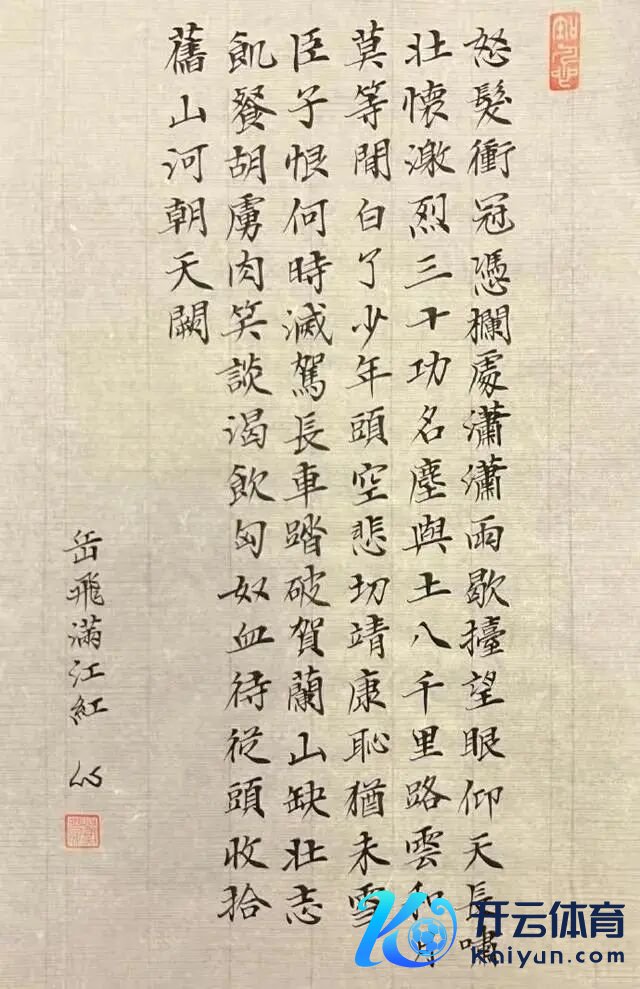 怒髮衝冠憑欄處瀟瀟雨歇擡望眼仰天長嘯
壯懷激烈三十功名塵與土八千里路雲和月
莫等閒白了少年頭空悲切靖康恥猶未雪
臣子恨何時滅駕長車踏破賀蘭山缺壯志
飢餐胡虜肉笑談渴飲匈奴血待從頭收拾
舊山河朝天闕
岳飛滿江紅
开云体育
kaiyun.com